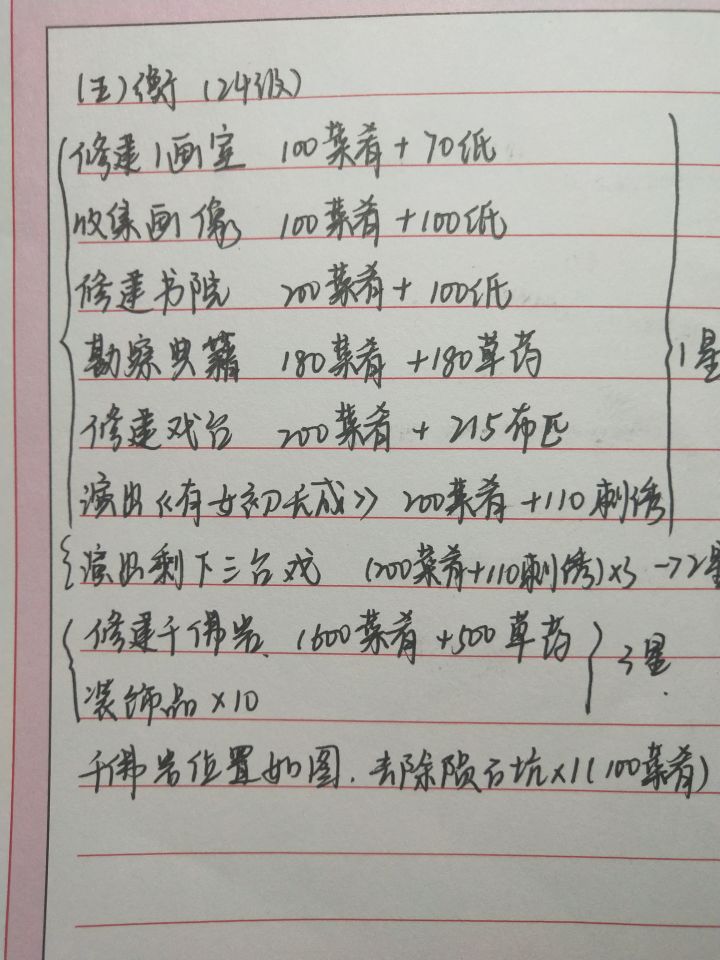 (五)衡 (24级)
修建1画室 100菜肴+70纸
收集画像 100菜肴+100纸
修建书院 200菜肴+100纸
勘察典籍 180菜肴+180草药 1星
修建戏台 200菜肴+215布匹
演出《有女初长成》 200菜肴+110刺绣
演出剩下三台戏 (200菜肴+110刺绣)×3→2星
修建千佛岩 1600菜肴+500草药
装饰品×10 3星
千佛岩位置如图.去除陨石坑×1(100菜肴)